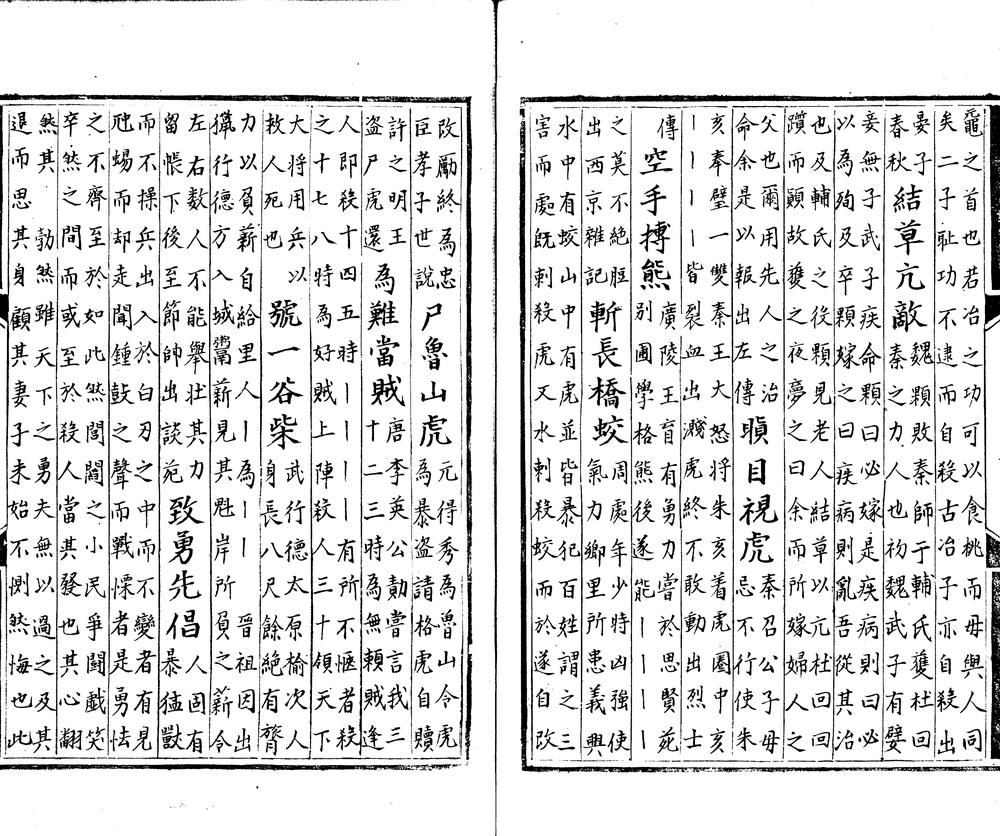 黿之首也若冶之功可以食桃而毋與人同
矣二子恥功不逮而自殺古冶子亦自殺出
晏子
春秋
結草亢敵
魏顆敗秦師于輔氏獲杜回
秦之力人也初魏武子有嬖
妾無子武子疾命顆曰必嫁是疾病則曰必
以為殉及卒顆嫁之曰疾病則亂吾從其治
也及輔氏之役顆見老人結草以亢杜回回
躓而顛故獲之夜夢之曰余而所嫁婦人之
父也爾用先人之治
命余是以報出左傳
瞋目視虎
秦召公子毋
忌不行使朱
亥奉璧一雙秦王大怒將朱亥着虎圈中亥
丨丨丨皆裂血出濺虎終不敢動出烈士
傳
空手摶熊
廣陵王胥有勇力嘗於思賢苑
别圃學格熊後遂能丨丨丨丨
之莫不絶脰
出西京雜記
斬長橋蛟
周處年少時凶強使
氣力鄉里所患義興
水中有蛟山中有虎並皆暴犯百姓謂之三
害而處既刺殺虎又水刺殺蛟而於遂自改
改厲終為忠
臣孝子世説
尸魯山虎
元得秀為魯山令虎
為暴盜請格虎自贖
許之明王
盜尸虎還
為難當賊
唐李英公勣嘗言我三
十二三時為無賴賊逢
人即殺十四五時丨丨丨丨有所不愜者殺
之十七八時為好賊上陣殺人三十領天下
大將用兵以
救人死也
號一谷柴
武行德太原榆次人
身長八尺餘絶有膂
力以負薪自給里人丨為丨丨丨晉祖因出
獵行德方入城鬻薪見其魁岸所負之薪令
左右數人不能舉壮其力
留帳下後至節帥出談苑
致勇先倡
人固有
暴猛獸
而不操兵出入於白刃之中而不變者有見
虺蜴而却走聞鍾鼓之聲而戰慄者是勇怯
之不齊至於如此然閭閻之小民爭鬭戲笑
卒然之間而或至於殺人當其發也其心翻
然其 勃然雖天下之勇夫無以過之及其
退而思其身顧其妻子未始不惻然悔也此